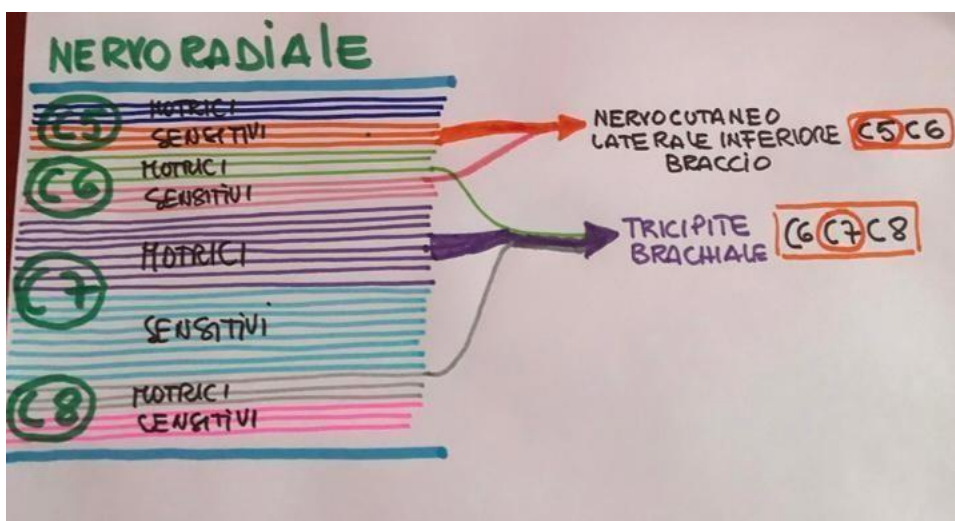 NERVO RADIALE
C5 MOTRICI
SENSITIVI
C6 MOTRICI
SENSITIVI
C7 MOTRICI
SENSITIVI
C8 MOTRICI
SENSITIVI
NERVO CUTANEO
LATERALE INFERIORE C5 C6
BRACCIO
TRICIPITE C6 C7 C8
BRACHIALE